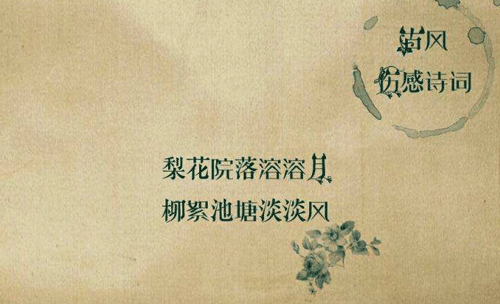 古风
伤感诗词
梨花院落溶溶月
柳絮池塘淡淡风